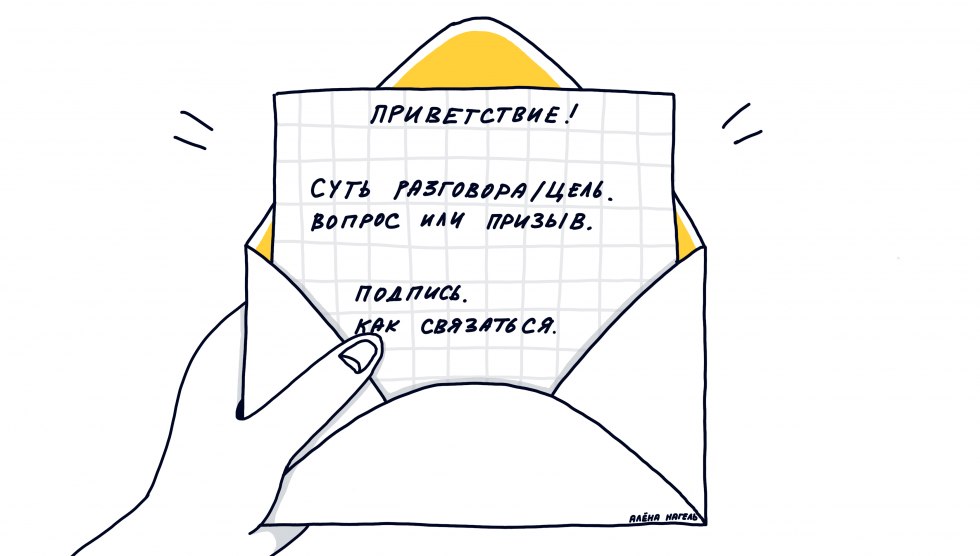 ПРИВЕТСТВИЕ!
СУТЬ РАЗГОВОРА/ЦЕЛЬ.
ВОПРОС ИЛИ ПРИЗЫВ.
ПОДПИСЬ.
КАК СВЯЗАТЬСЯ.
АЛЁНА НАГЕЛЬ